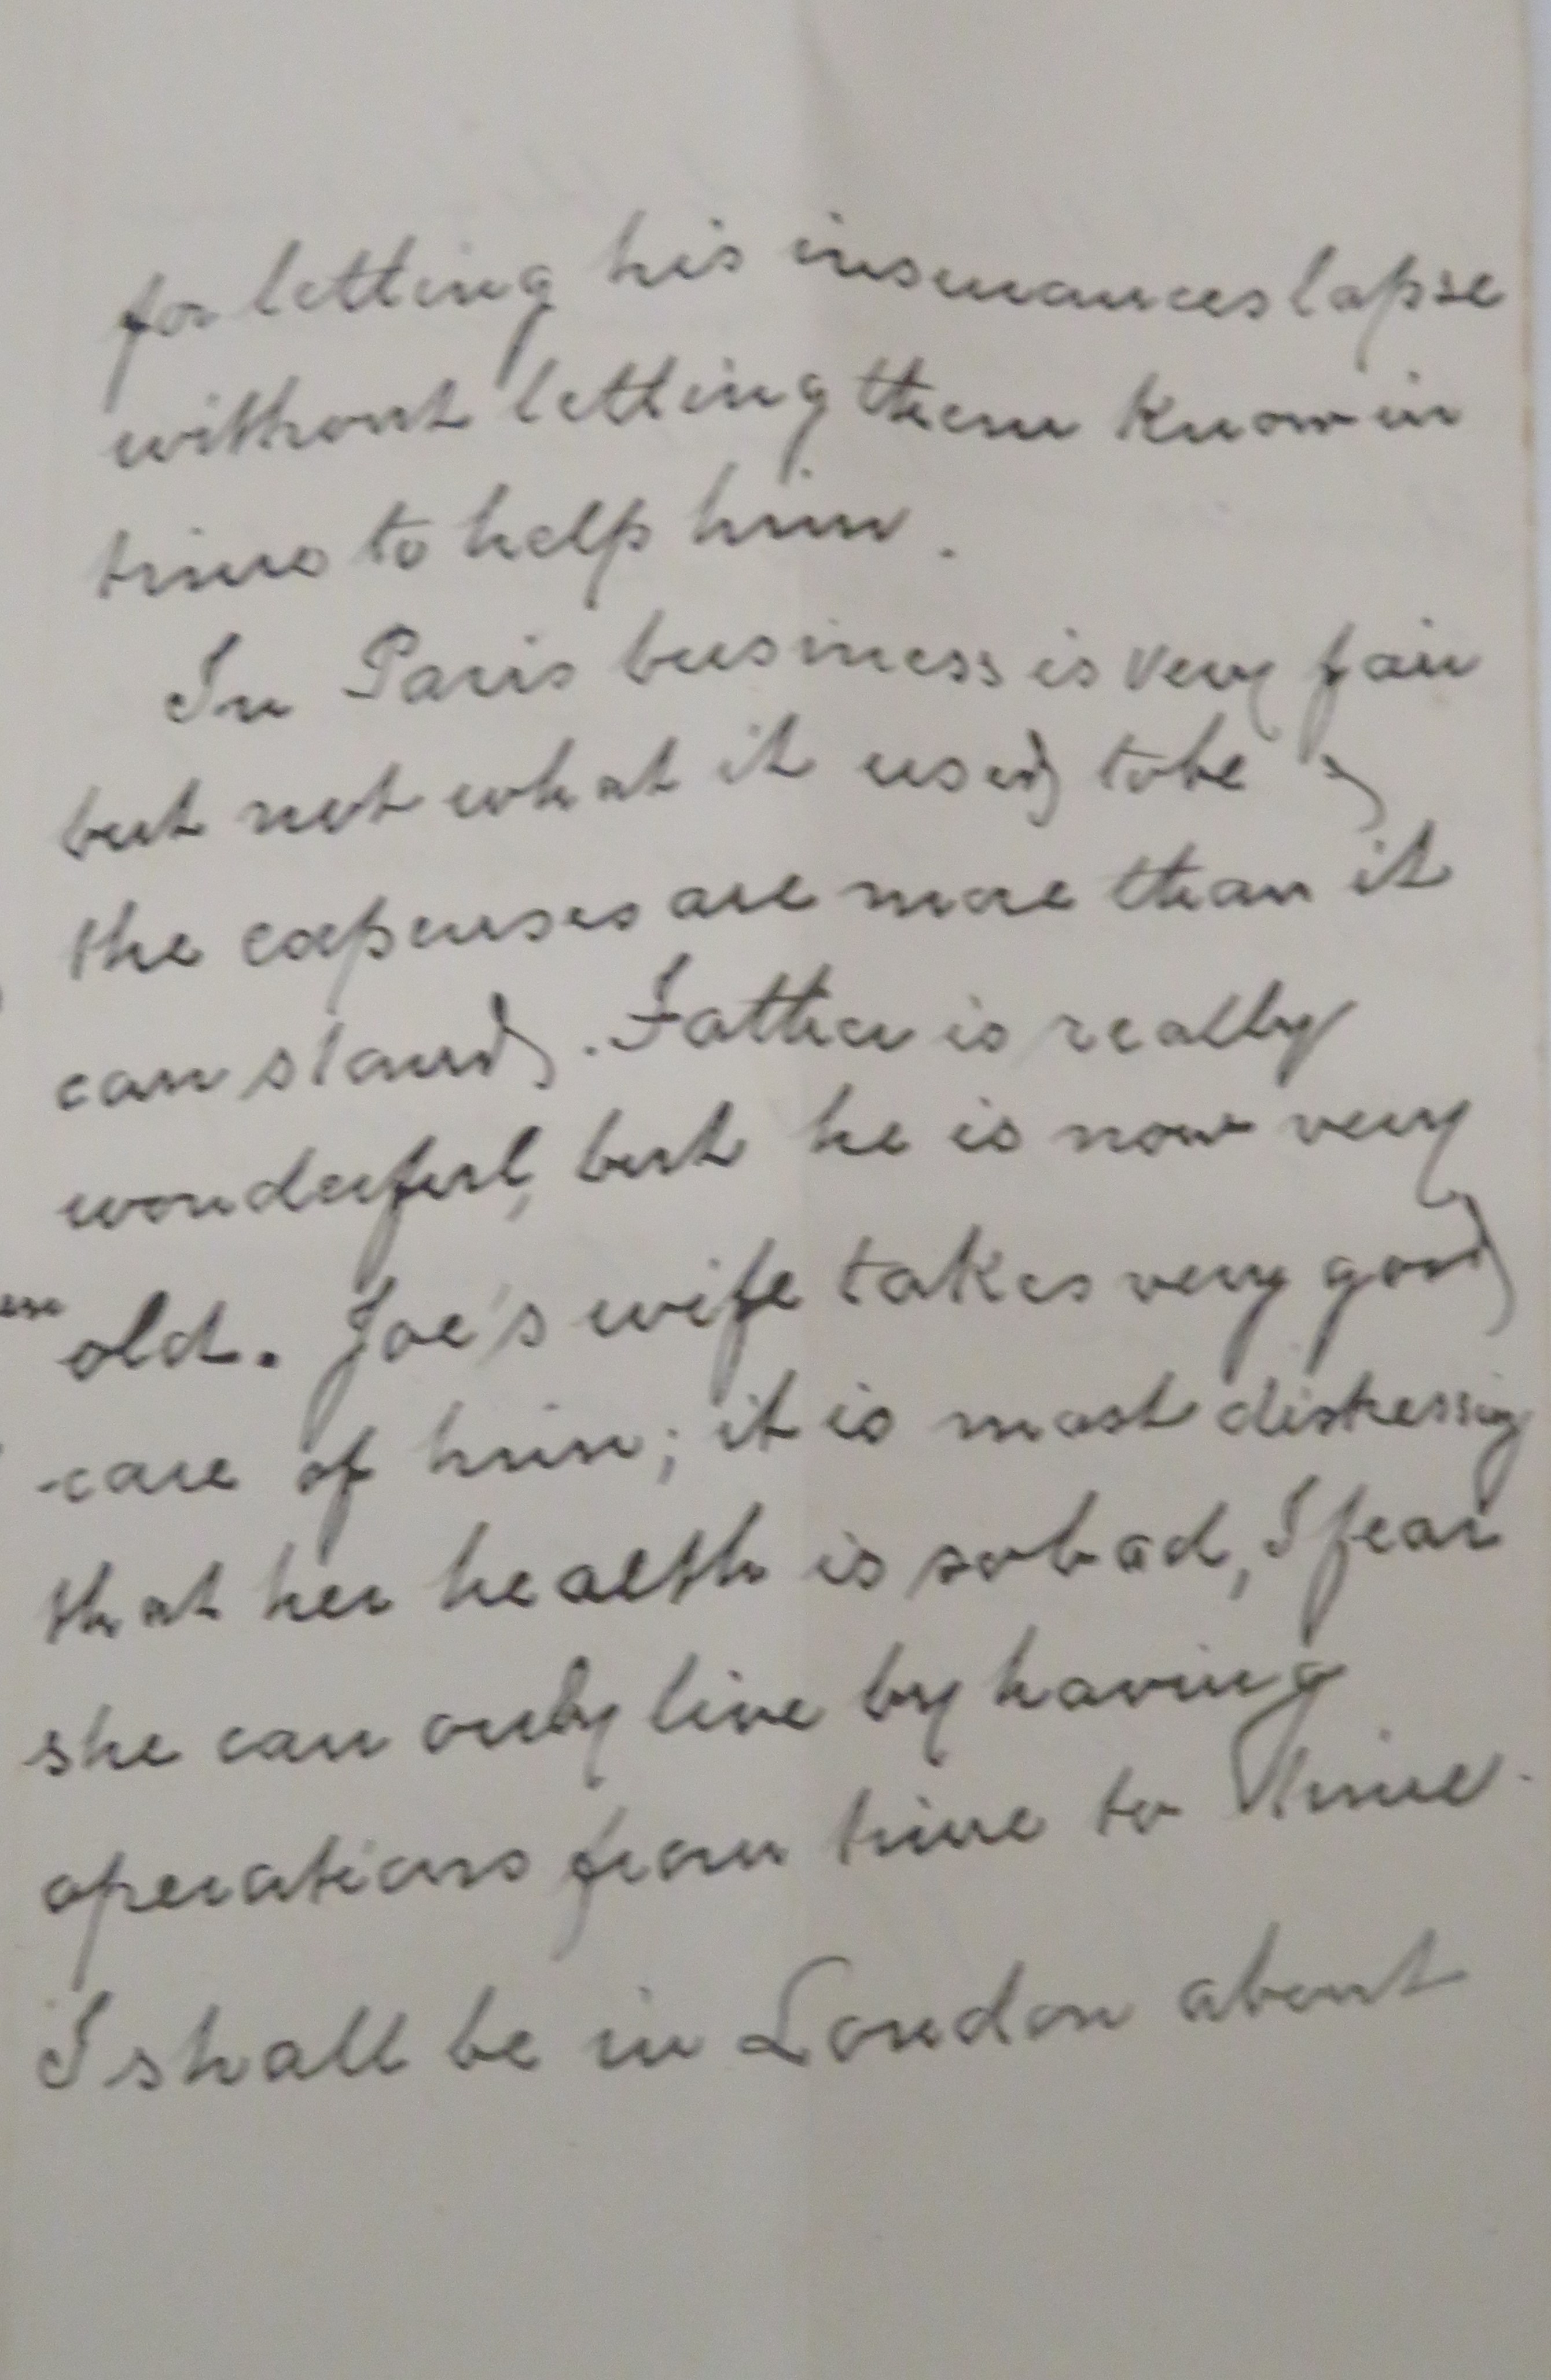 for letting his insurances lapse
without letting them know in
time to help him.
In Paris business is very fair
but not what it used to be,
the expenses are more than it
can stand. Father is really
wonderful, but he is now very
old. Joe's wife takes very good
care of him; it is most distressing
that her health is so bad, I fear
she can only live by having
operations from time to time.
I shall be in London about